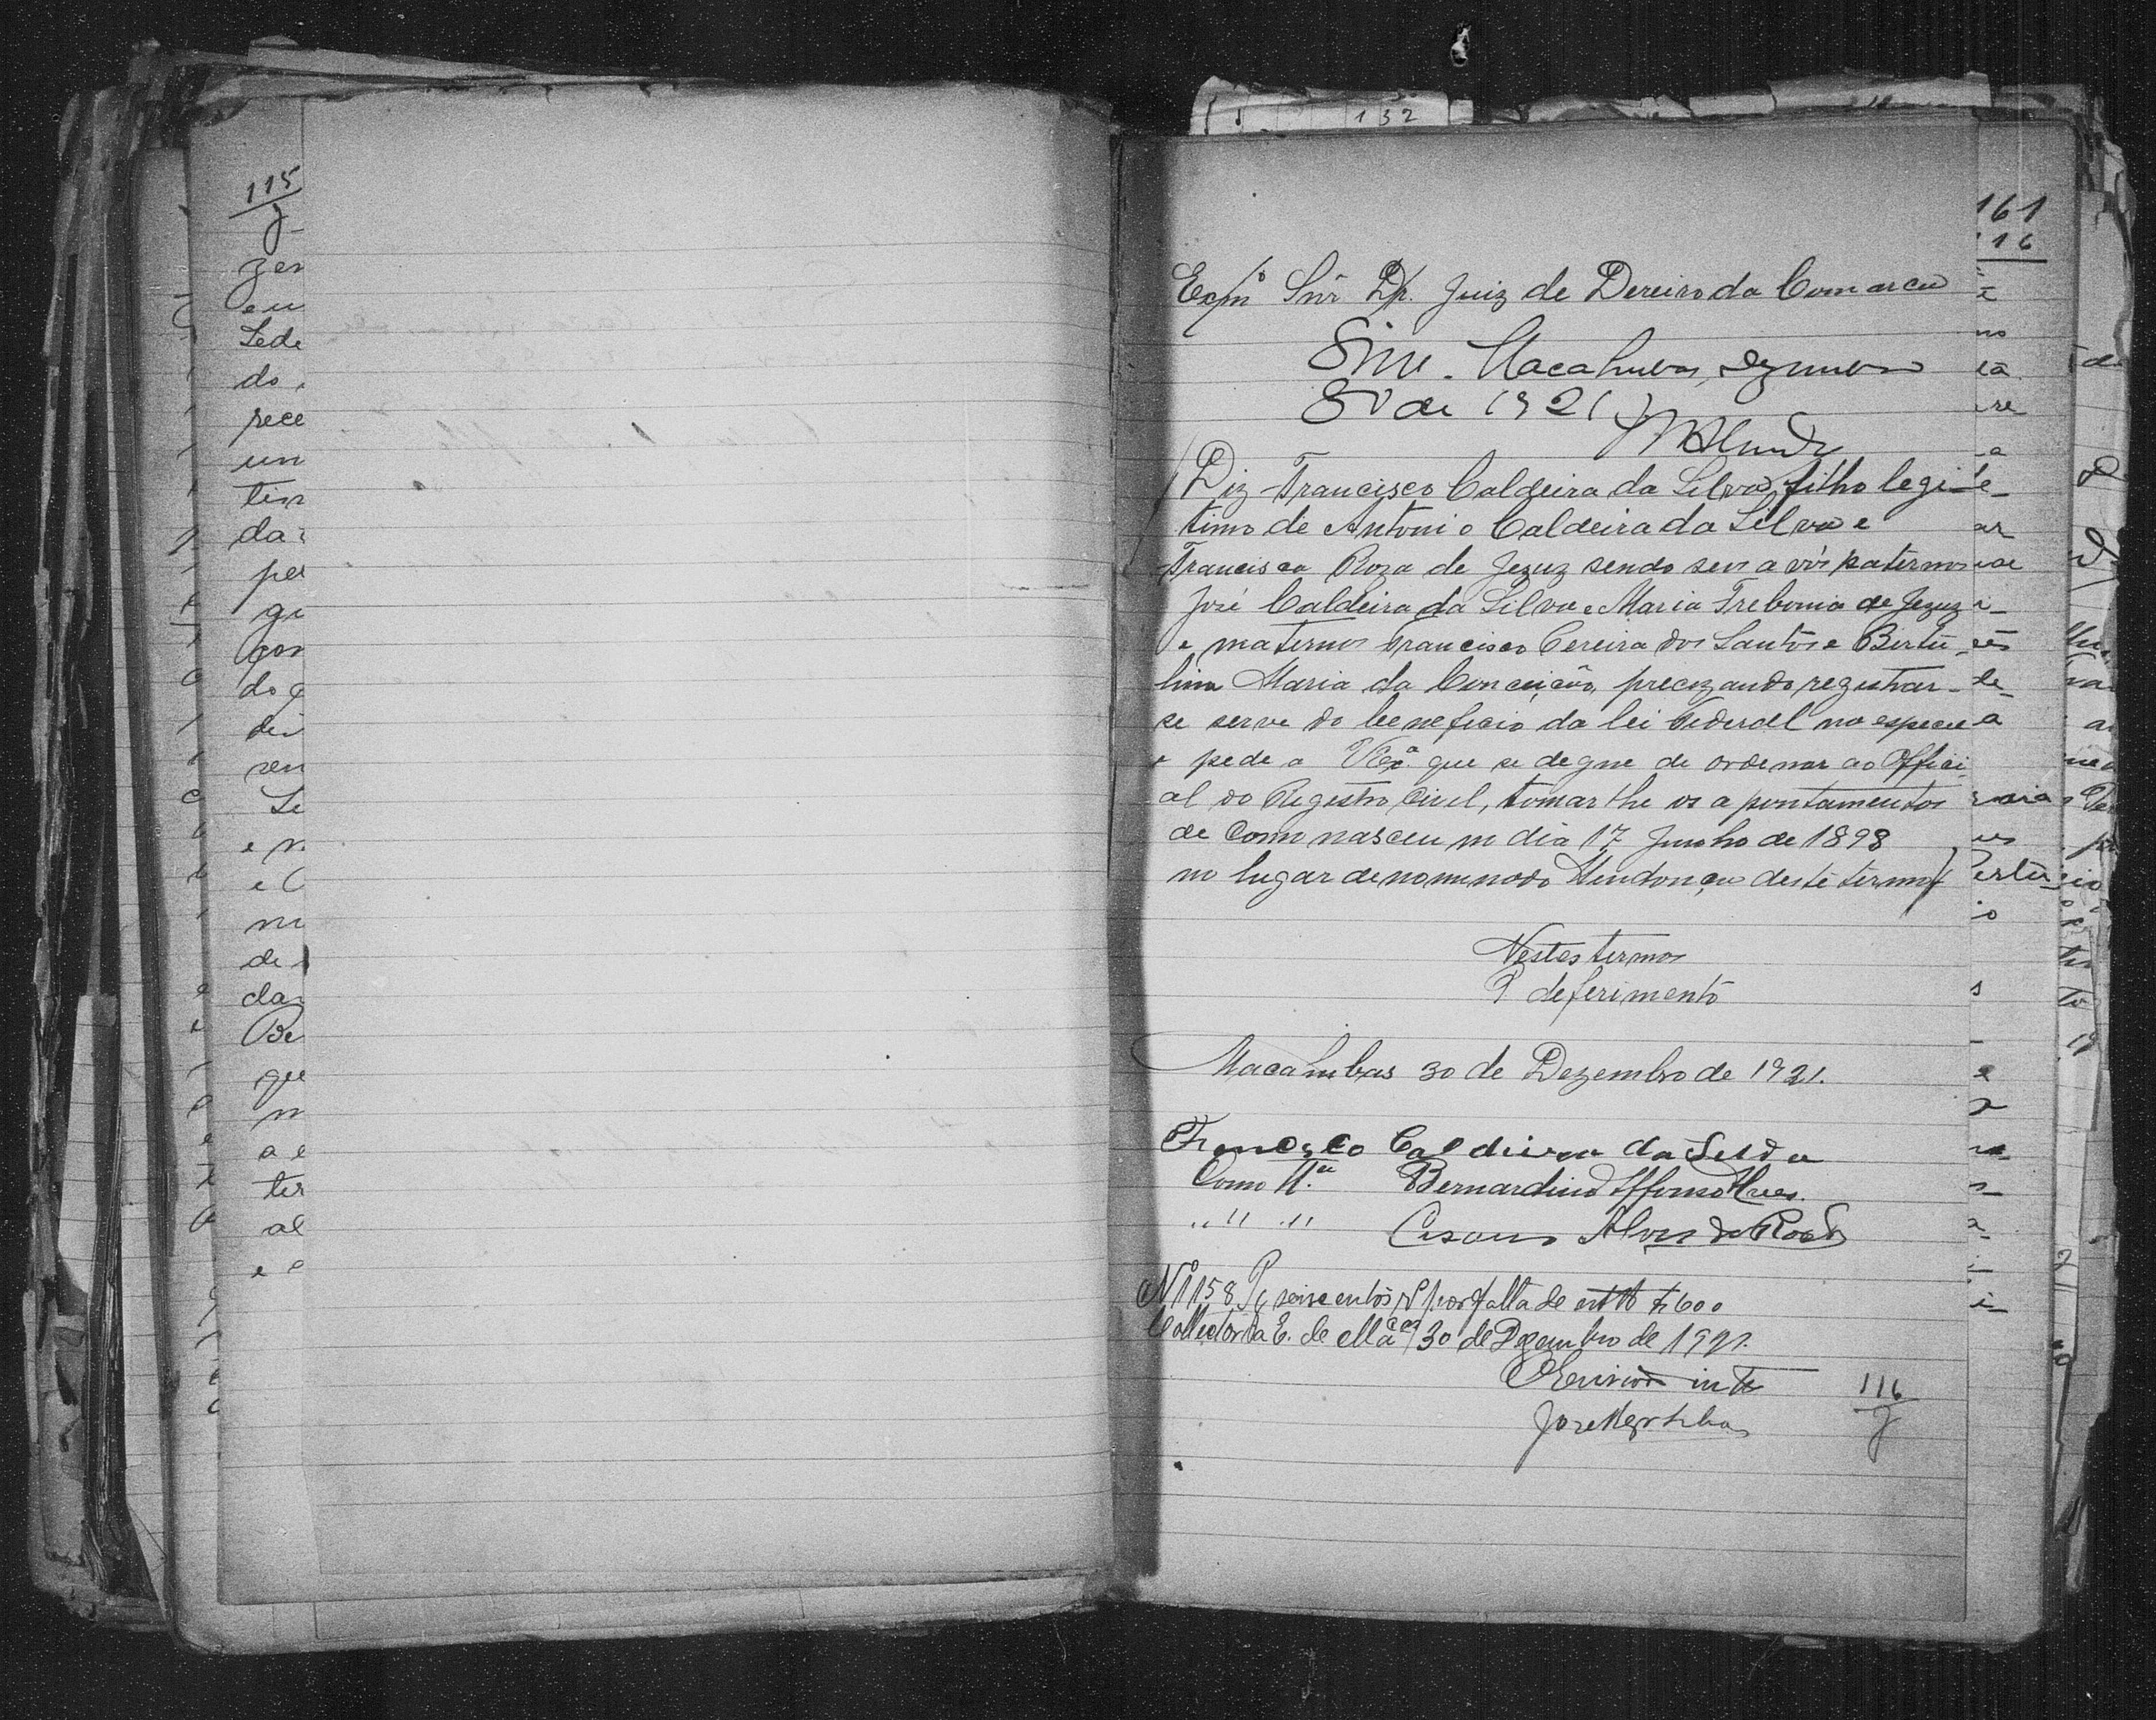 115
zen
eu
Sede
do
rece
un
tin
da
pel
gi
con
do
din
ren
Se
e n
e C
ni
de
da
Be
que
m
a e
ter
al
e e
132
161
116
Exmº Snr Dr. Juiz de Dereiro da Comarca
Sim. Macahubas, dezembro
30 de 1921
Diz Francisco Caldeira da Silva, filho legi-
timo de Antonio Caldeira da Silva e
Francisca Roza de Jezuz sendo seus avós paternos
José Caldeira da Silva e Maria Trebonia de Jezuz
e maternos Francisco Pereira dos Santos e Bertu-
lina Maria da Conceição, precizando registrar-
se serve do beneficio da lei Federal na especie
e pede a VExª que se degne de ordenar ao Offici-
al do Registro Civel, tomar lhe os apontamentos
de como nasceu no dia 17 Junho de 1898
no lugar denominado Mendonça deste termo
Nestes termos
P deferimento
Macahubas 30 de Dezembro de 1921.
Francisco Caldeira da Silva
Como tª Bernardino Affonso Alves.
" " " Cesario Alves da Rocha
Nº 1158 Pg seiscentos rs por falta de estt $600
Collectoria E. de Macas 30 de Dezembro de 1921.
O Escrivão intº
116